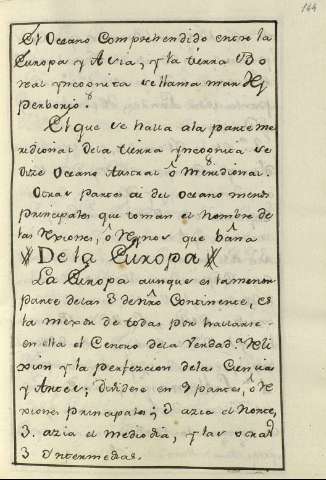 164
El Oceano Comprehendido entre la
Europa y Asia, y la tierra Bo
real yncognita se llama mar Hy
perborio.
El que se halla ala parte me
ridional dela tierra yncognita se
dize Oceano Austral ô Meridional.
Otras partes ai del Oceano menos
principales que toman el nombre de
las rexiones, ô reynos que baña
De la Europa
La Europa aunque es la menor
parte delas 3 de nro Continente, es
la mexor de todas por hallarse
en ella el Centro dela Verdad.ª Reli
xion y la perfeccion delas Ciencias
y Artes; Dividese en 9 partes, ô re
xiones principales; 3 azia el Norte,
3. azia el mediodia, y las otras
3 Yntermedias.